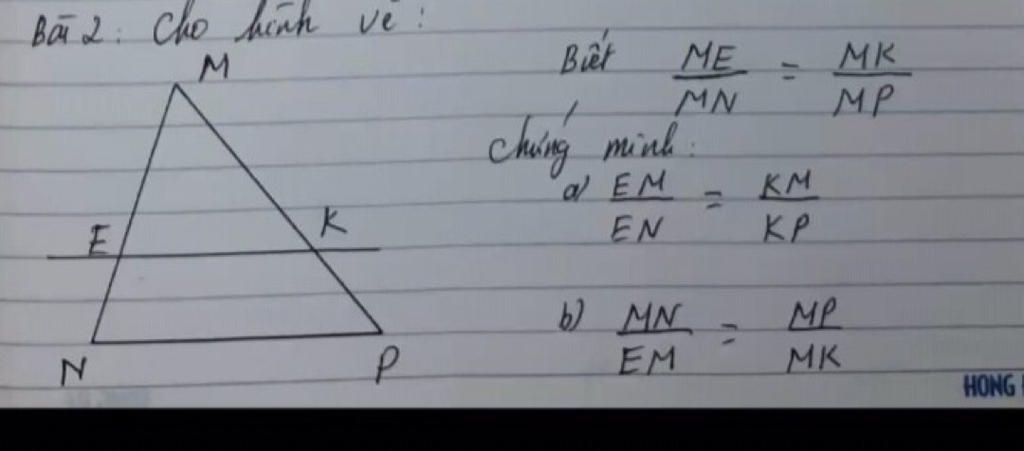 Bài 2: Cho hình vẽ:
M
Biết ME/MN = MK/MP
Chứng minh:
a) EM/EN = KM/KP
E K
b) MN/EM = MP/MK
N P
HONG